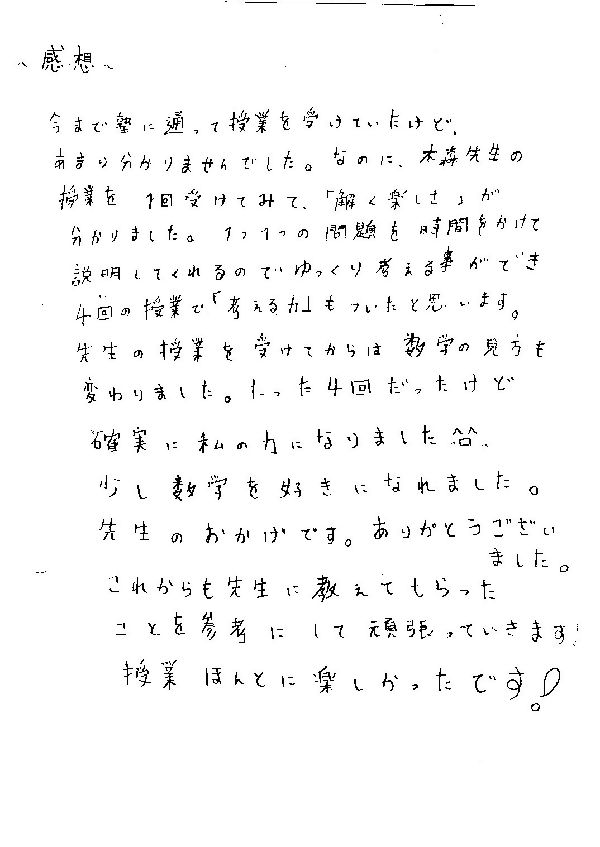 ~感想~
今まで塾に通って授業を受けていたけど、
あまり分かりませんでした。なのに、木森先生の
授業を1回受けてみて、「解く楽しさ」が
分かりました。1つ1つの問題を時間をかけて
説明してくれるのでゆっくり考える事ができ
4回の授業で「考える力」もついたと思います。
先生の授業を受けてからは数学の見方も
変わりました。たった4回だったけど
確実に私の力になりました^^、
少し数学を好きになれました。
先生のおかげです。ありがとうござい
ました。
これからも先生に教えてもらった
ことを参考にして頑張っていきます!
授業ほんとに楽しかったです!